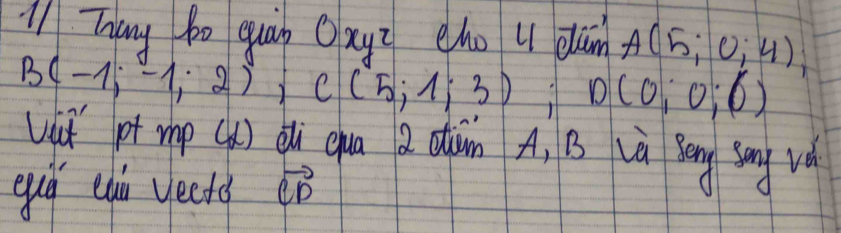 1/ Trong ko gian Oxyz cho 4 điểm A(5; 0; 4);
B(-1; -1; 2) ; C (5; 1; 3) ; D(0; 0; 6)
Viết pt mp (α) đi qua 2 điểm A, B và song song với
giá của vectơ CD→